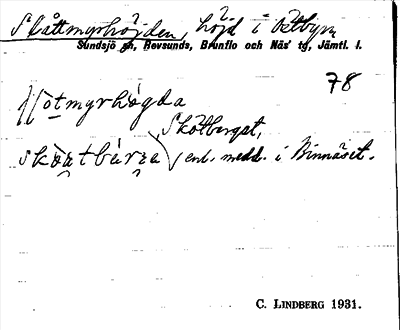 Slåttmyrhöjden, höjd i Östbyn
Sundsjö sn, Revsunds, Brunflo och Näs' tg, Jämtl. l.
78
Slòtmyrhògda
Skötberget,
skòatbárɛa enl. medd. i Binnäset.
C. LINDBERG 1931.